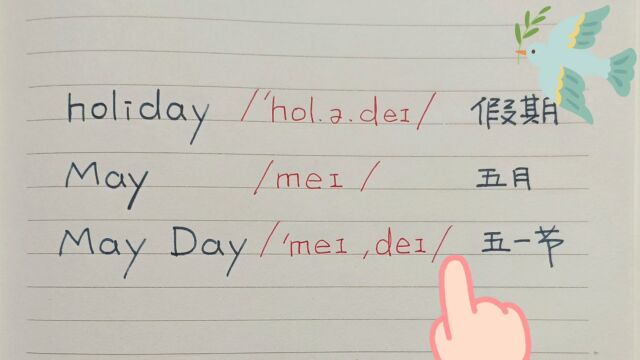 holiday /'hol.ə.deɪ/ 假期
May /meɪ/ 五月
May Day /'meɪ ,deɪ/ 五一节